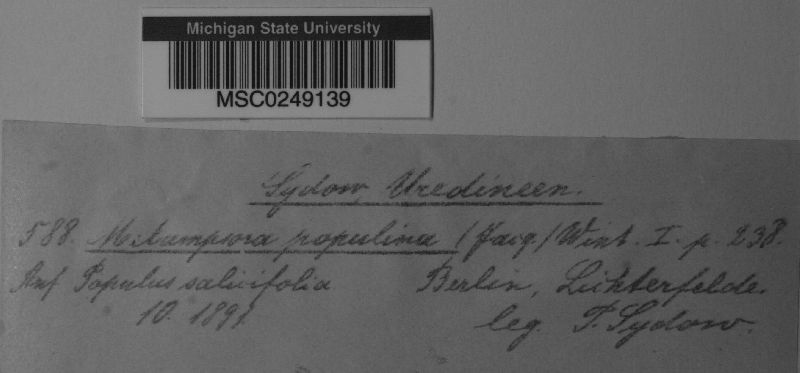 Michigan State University
MSC0249139
Sydow, Uredineen.
588. Melampsora populina (Jacq.) Wint. I. p. 238.
Auf Populus salicifolia Berlin, Lichterfelde.
10. 1891 leg. P. Sydow.